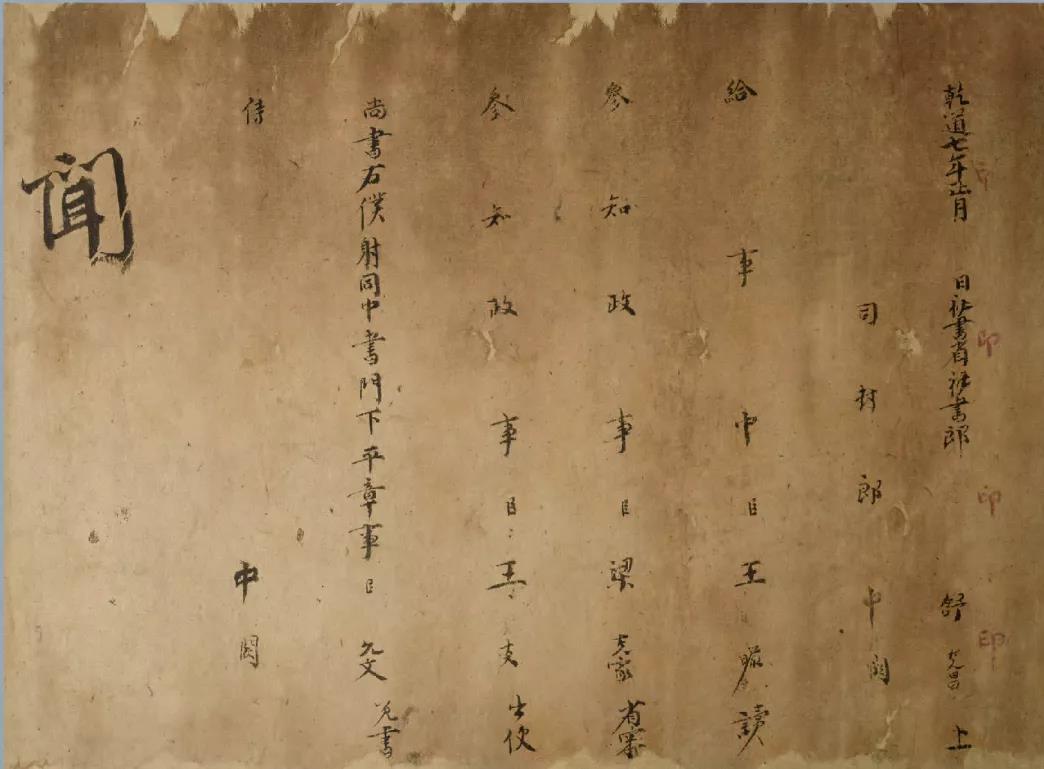 乾道七年正月 日秘書省秘書郎 舒光昌 上
印 印 印 印
司封郎 中闕
給事中臣王 讀
參知政事臣梁克家 省審
參知政事臣王 出使
尚書右僕射同中書門下平章事臣 允文 免書
侍 中闕
聞